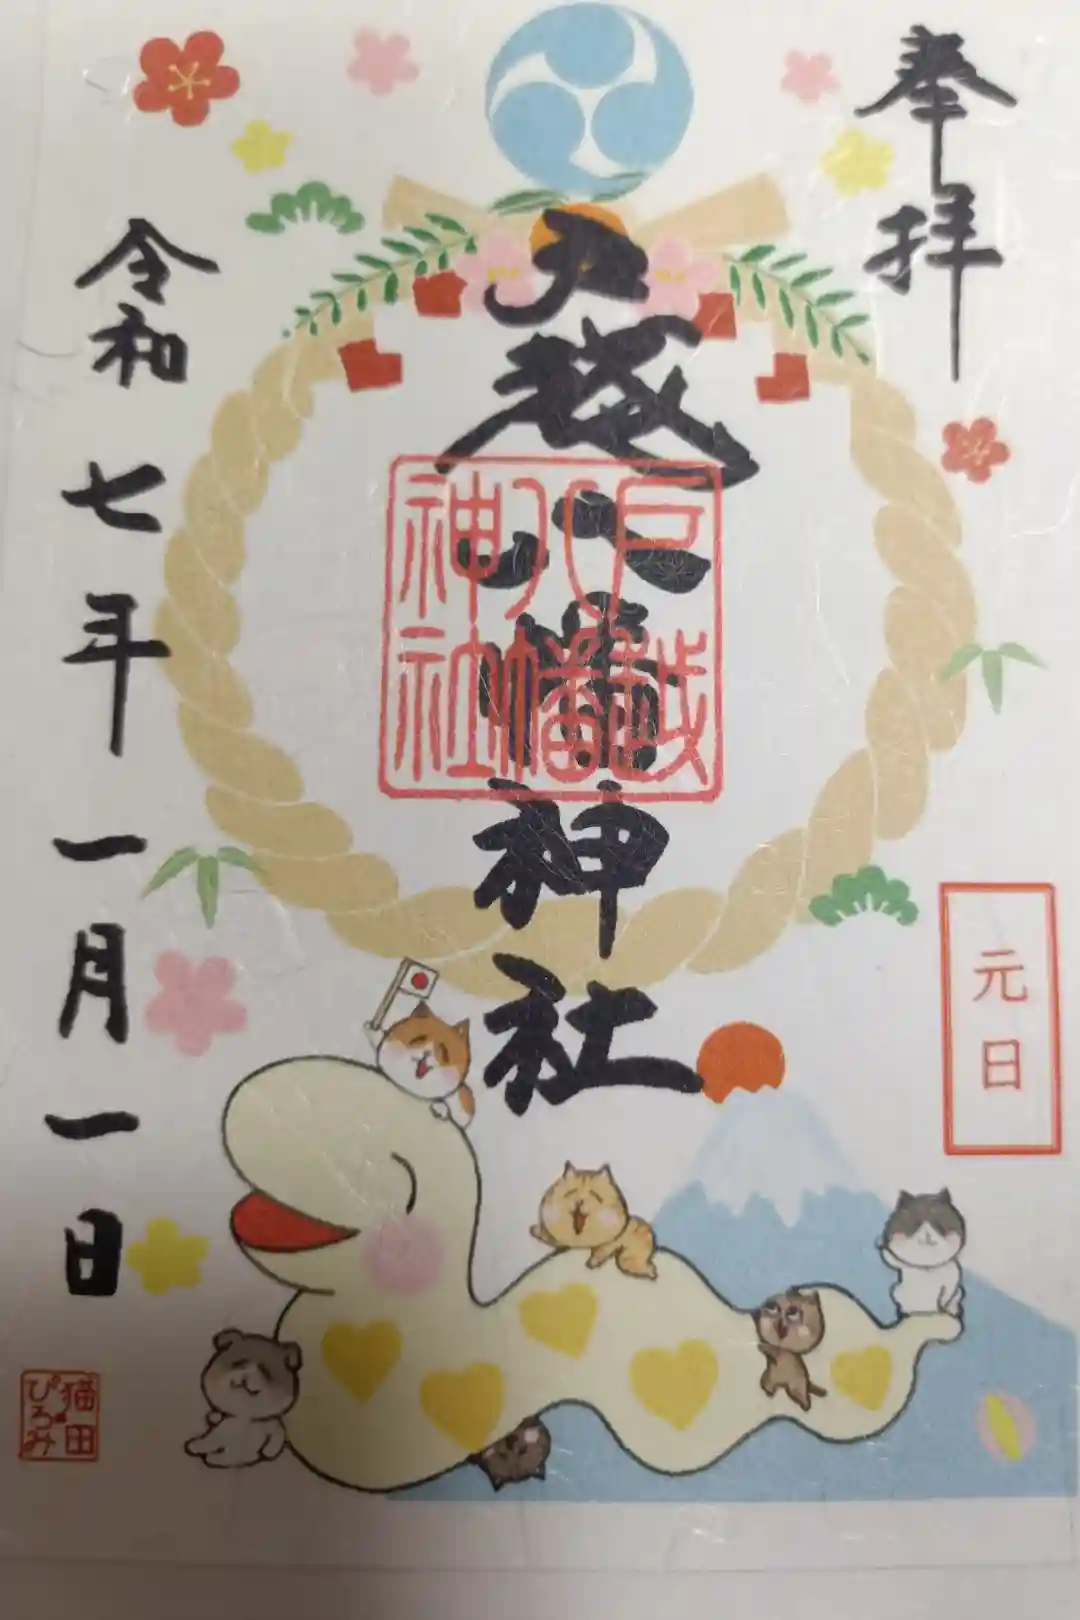 奉拝
戸越八幡神社
戸越
八幡
神社
令和七年一月一日
元日
猫田
ぴろみ